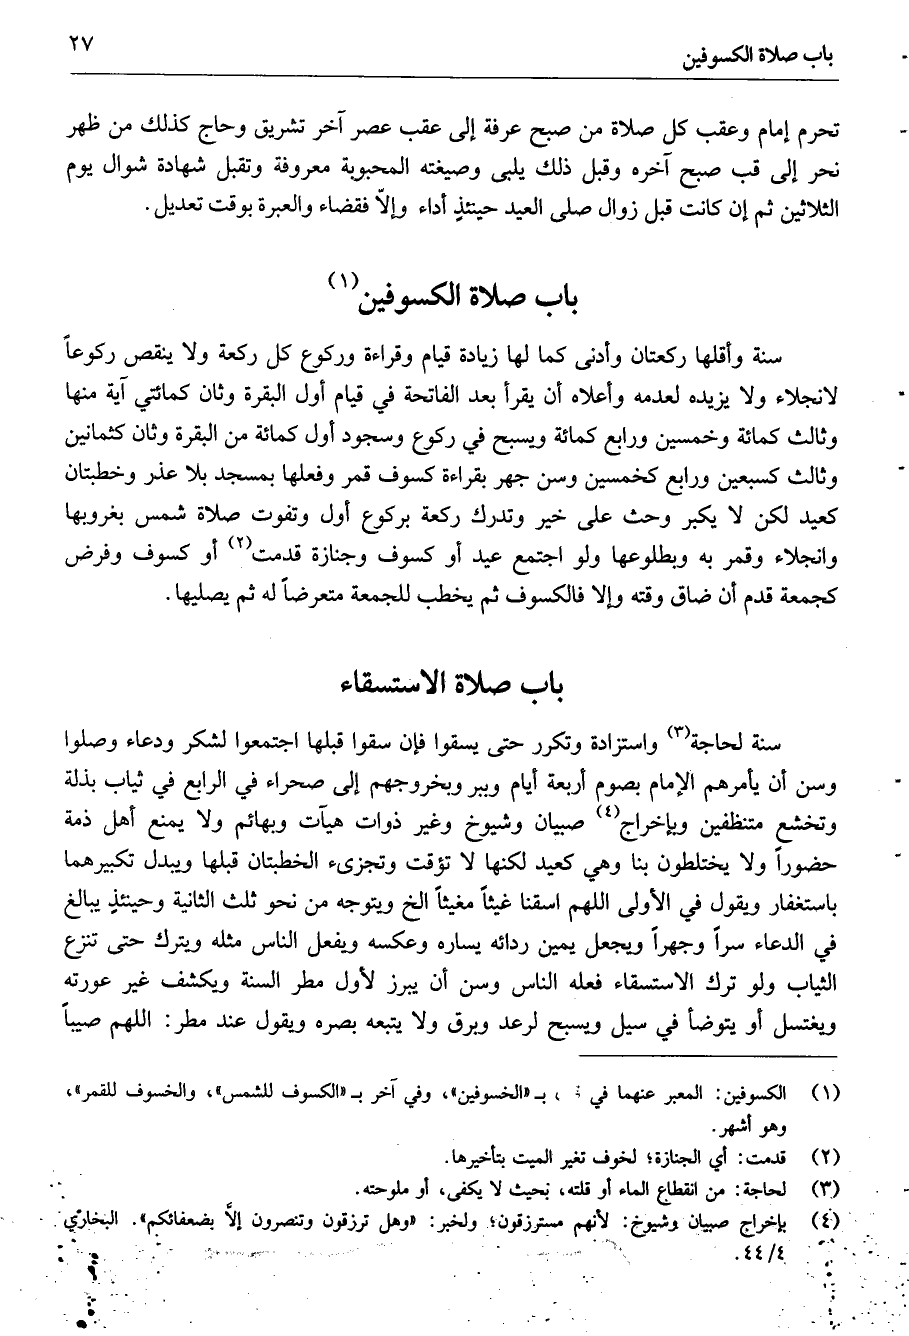 باب صلاة الكسوفين
٢٧
تحرم إمام وعقب كل صلاة من صبح عرفة إلى عقب عصر آخر تشريق وحاج كذلك من ظهر
نحر إلى قب صبح آخره وقبل ذلك يلبى وصيغته المحبوبة معروفة وتقبل شهادة شوال يوم
الثلاثين ثم إن كانت قبل زوال صلى العيد حينئذٍ أداء وإلاّ فقضاء والعبرة بوقت تعديل.
باب صلاة الكسوفين(١)
سنة وأقلها ركعتان وأدنى كما لها زيادة قيام وقراءة وركوع كل ركعة ولا ينقص ركوعاً
لانجلاء ولا يزيده لعدمه وأعلاه أن يقرأ بعد الفاتحة في قيام أول البقرة وثان كمائتي آية منها
وثالث كمائة وخمسين ورابع كمائة ويسبح في ركوع وسجود أول كمائة من البقرة وثان كثمانين
وثالث كسبعين ورابع كخمسين وسن جهر بقراءة كسوف قمر وفعلها بمسجد بلا عذر وخطبتان
كعيد لكن لا يكبر وحث على خير وتدرك ركعة بركوع أول وتفوت صلاة شمس بغروبها
وانجلاء وقمر به وبطلوعها ولو اجتمع عيد أو كسوف وجنازة قدمت(٢) أو كسوف وفرض
كجمعة قدم أن ضاق وقته وإلا فالكسوف ثم يخطب للجمعة متعرضاً له ثم يصليها.
باب صلاة الاستسقاء
سنة لحاجة(٣) واستزادة وتكرر حتى يسقوا فإن سقوا قبلها اجتمعوا لشكر ودعاء وصلوا
وسن أن يأمرهم الإمام بصوم أربعة أيام وببر وبخروجهم إلى صحراء في الرابع في ثياب بذلة
وتخشع متنظفين وبإخراج(٤) صبيان وشيوخ وغير ذوات هيآت وبهائم ولا يمنع أهل ذمة
حضوراً ولا يختلطون بنا وهي كعيد لكنها لا تؤقت وتجزىء الخطبتان قبلها ويبدل تكبيرهما
باستغفار ويقول في الأولى اللهم اسقنا غيثاً مغيثاً الخ ويتوجه من نحو ثلث الثانية وحينئذٍ يبالغ
في الدعاء سراً وجهراً ويجعل يمين ردائه يساره وعكسه ويفعل الناس مثله ويترك حتى تنزع
الثياب ولو ترك الاستسقاء فعله الناس وسن أن يبرز لأول مطر السنة ويكشف غير عورته
ويغتسل أو يتوضأ في سيل ويسبح لرعد وبرق ولا يتبعه بصره ويقول عند مطر: اللهم صيباً
(١) الكسوفين: المعبر عنهما في ، بـ «الخسوفين»، وفي آخر بـ «الكسوف للشمس»، والخسوف للقمر»،
وهو أشهر.
(٢) قدمت: أي الجنازة؛ لخوف تغير الميت بتأخيرها.
(٣) لحاجة: من انقطاع الماء أو قلته، بحيث لا يكفى، أو ملوحته.
(٤) بإخراج صبيان وشيوخ: لأنهم مسترزقون؛ ولخبر: «وهل ترزقون وتنصرون إلاَّ بضعفائكم». البخاري
٤/ ٤٤.